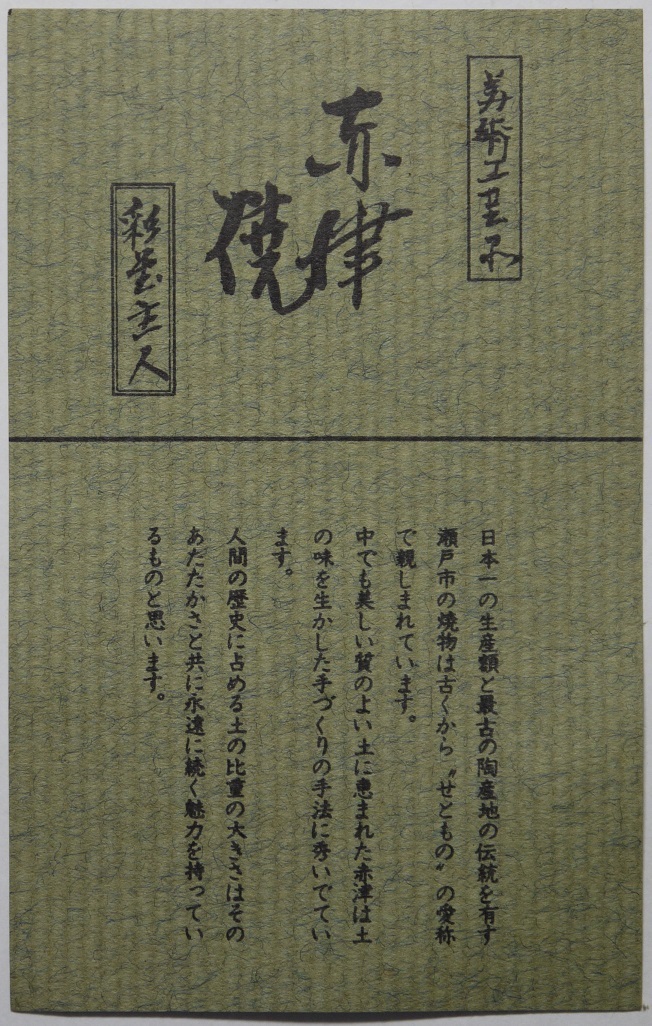 美術工芸品
赤津
焼
彩芸主人
日本一の生産額と最古の陶産地の伝統を有す
瀬戸市の焼物は古くから〝せともの〟の愛称
で親しまれています。
中でも美しい質のよい土に恵まれた赤津は土
の味を生かした手づくりの手法に秀いでてい
ます。
人間の歴史に占める土の比重の大きさはその
あたたかさと共に永遠に続く魅力を持ってい
るものと思います。